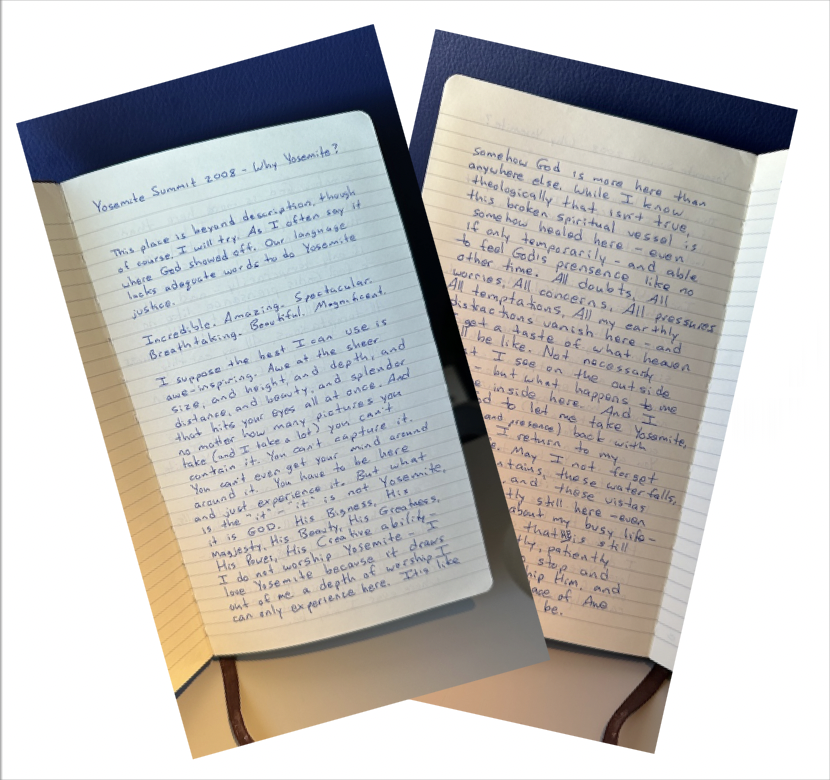 Yosemite Summit 2008 - Why Yosemite?
This place is beyond description, though
of course, I will try. As I often say it
where God showed off. Our language
lacks adequate words to do Yosemite
justice.
Incredible. Amazing. Spectacular.
Breathtaking. Beautiful. Magnificent.
I suppose the best I can use is
awe-inspiring. Awe at the sheer
size, and height, and depth, and
distance, and beauty, and splendor
that hits your eyes all at once. And
no matter how many pictures you
take (and I take a lot) you can't
contain it. You can't capture it.
You can't even get your mind around
around it. You have to be here
and just experience it. But what
is the "it" - "it" is not Yosemite,
it is GOD. His Bigness, His
Majesty, His Beauty, His Greatness,
His Power, His Creative ability -
I do not worship Yosemite - I
love Yosemite because it draws
out of me a depth of worship I
can only experience here. It is like
somehow God is more here than
anywhere else. While I know
theologically that isn't true,
this broken spiritual vessel is
somehow healed here - even
if only temporarily - and able
to feel God's prensence like no
other time. All doubts, All
worries, All concerns, All pressures
All temptations, All my earthly
distractions vanish here - and
get a taste of what heaven
be like. Not necessarily
I see on the outside
- but what happens to me
inside here. And I
to let me take Yosemite,
and presence) back with
I return to my
May I not forget
these waterfalls,
and these vistas
still here - even
about my busy life -
that He is still
patiently
stop and
Him, and
of Awe
be.